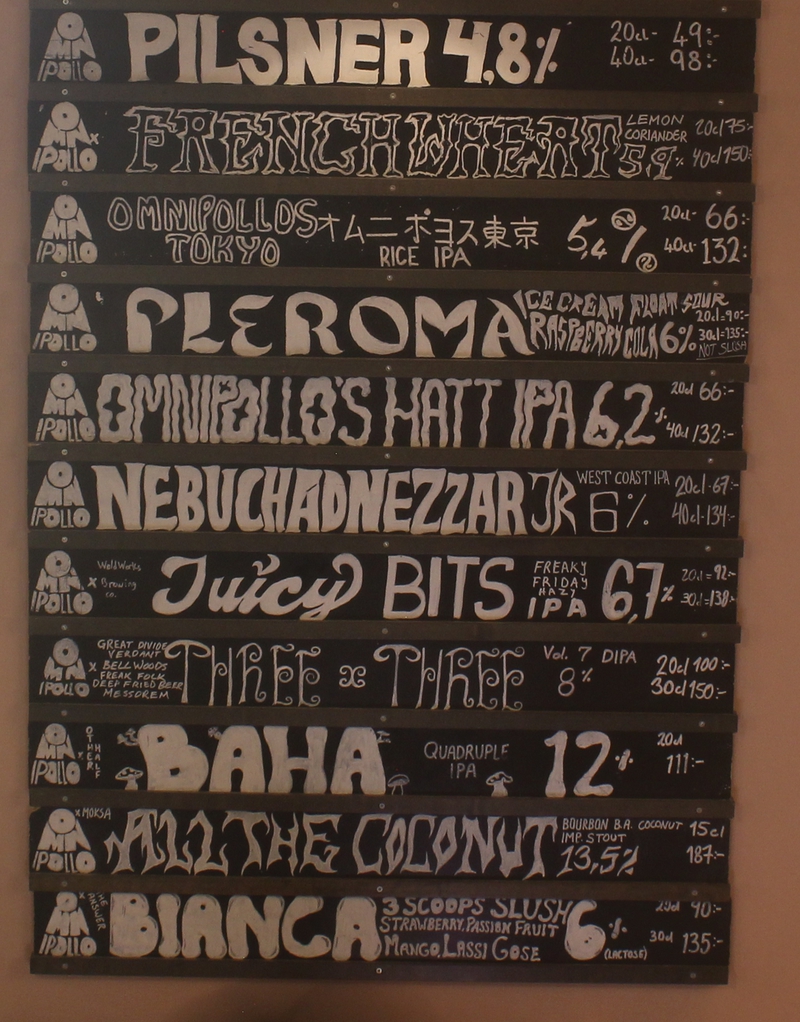 OMNIPOLLO PILSNER 4,8% 20cl- 49:-
40cl- 98:-
OMNIPOLLO x FRENCH WHEAT LEMON CORIANDER 5,9% 20cl/75:-
40cl/150:-
OMNIPOLLO OMNIPOLLOS TOKYO オムニポヨス東京 RICE IPA 5,4% 20cl- 66:-
40cl- 132:-
OMNIPOLLO PLEROMA ICE CREAM FLOAT SOUR
RASPBERRY COLA 6% 20cl=90:-
30cl=135:-
NOT SLUSH
OMNIPOLLO OMNIPOLLO'S HATT IPA 6,2% 20cl 66:-
40cl 132:-
OMNIPOLLO NEBUCHADNEZZAR JR WEST COAST IPA 6% 20cl-67:-
40cl-134:-
OMNIPOLLO x WeldWerks Brewing co. Juicy BITS FREAKY FRIDAY HAZY IPA 6,7% 20cl=92:-
30cl=138:-
OMNIPOLLO x GREAT DIVIDE
VERDANT
BELLWOODS
FREAK FOLK
DEEP FRIED BEER
MESSOREM
THREE x THREE Vol. 7 DIPA 8% 20cl 100:-
30cl 150:-
OMNIPOLLO x OTHER HALF BAHA QUADRUPLE IPA 12% 20cl
111:-
OMNIPOLLO x MOKSA ALL THE COCONUT BOURBON B.A. COCONUT
IMP. STOUT 13,5% 15cl
187:-
OMNIPOLLO x THE ANSWER BIANCA 3 SCOOPS SLUSH
STRAWBERRY, PASSION FRUIT
MANGO, LASSI GOSE 6% (LACTOSE) 20cl 90:-
30cl 135:-